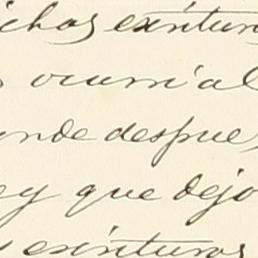 ichas escritur
ocurrió al
nde despues
ey que dejo
escrituras